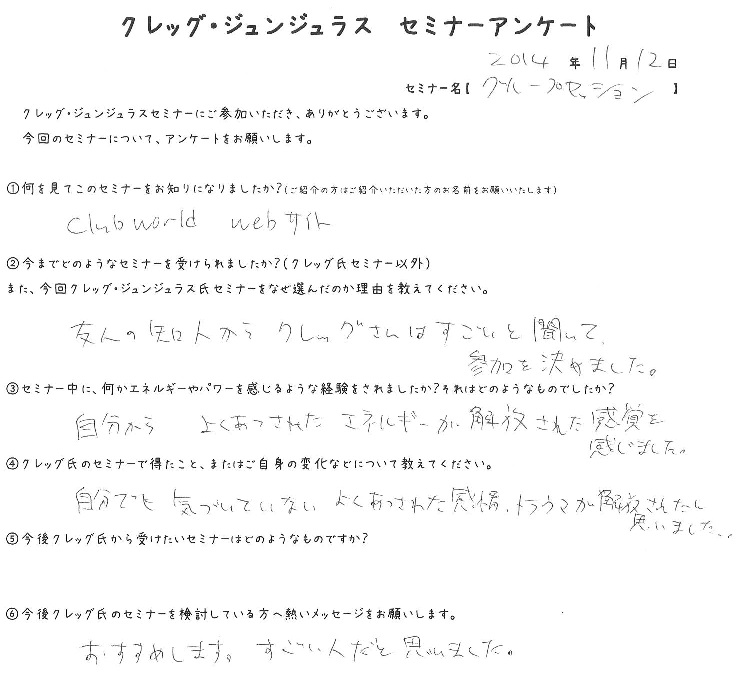 クレッグ・ジュンジュラス セミナーアンケート
2014 年 11 月 12 日
セミナー名【 グループセッション 】
クレッグ・ジュンジュラスセミナーにご参加いただき、ありがとうございます。
今回のセミナーについて、アンケートをお願いします。
①何を見てこのセミナーをお知りになりましたか?(ご紹介の方はご紹介いただいた方のお名前をお願いいたします)
Club world webサイト
②今までどのようなセミナーを受けられましたか?(クレッグ氏セミナー以外)
また、今回クレッグ・ジュンジュラス氏セミナーをなぜ選んだのか理由を教えてください。
友人の知人から クレッグさんはすごいと聞いて、
参加を決めました。
③セミナー中に、何かエネルギーやパワーを感じるような経験をされましたか?それはどのようなものでしたか?
自分から よくあつされた エネルギーが 解放された感覚を
感じました。
④クレッグ氏のセミナーで得たこと、またはご自身の変化などについて教えてください。
自分でも 気づいていない よくあつされた感情、トラウマが解放されたと
思いました。
⑤今後クレッグ氏から受けたいセミナーはどのようなものですか?
⑥今後クレッグ氏のセミナーを検討している方へ熱いメッセージをお願いします。
おすすめします。すごい人だと思いました。